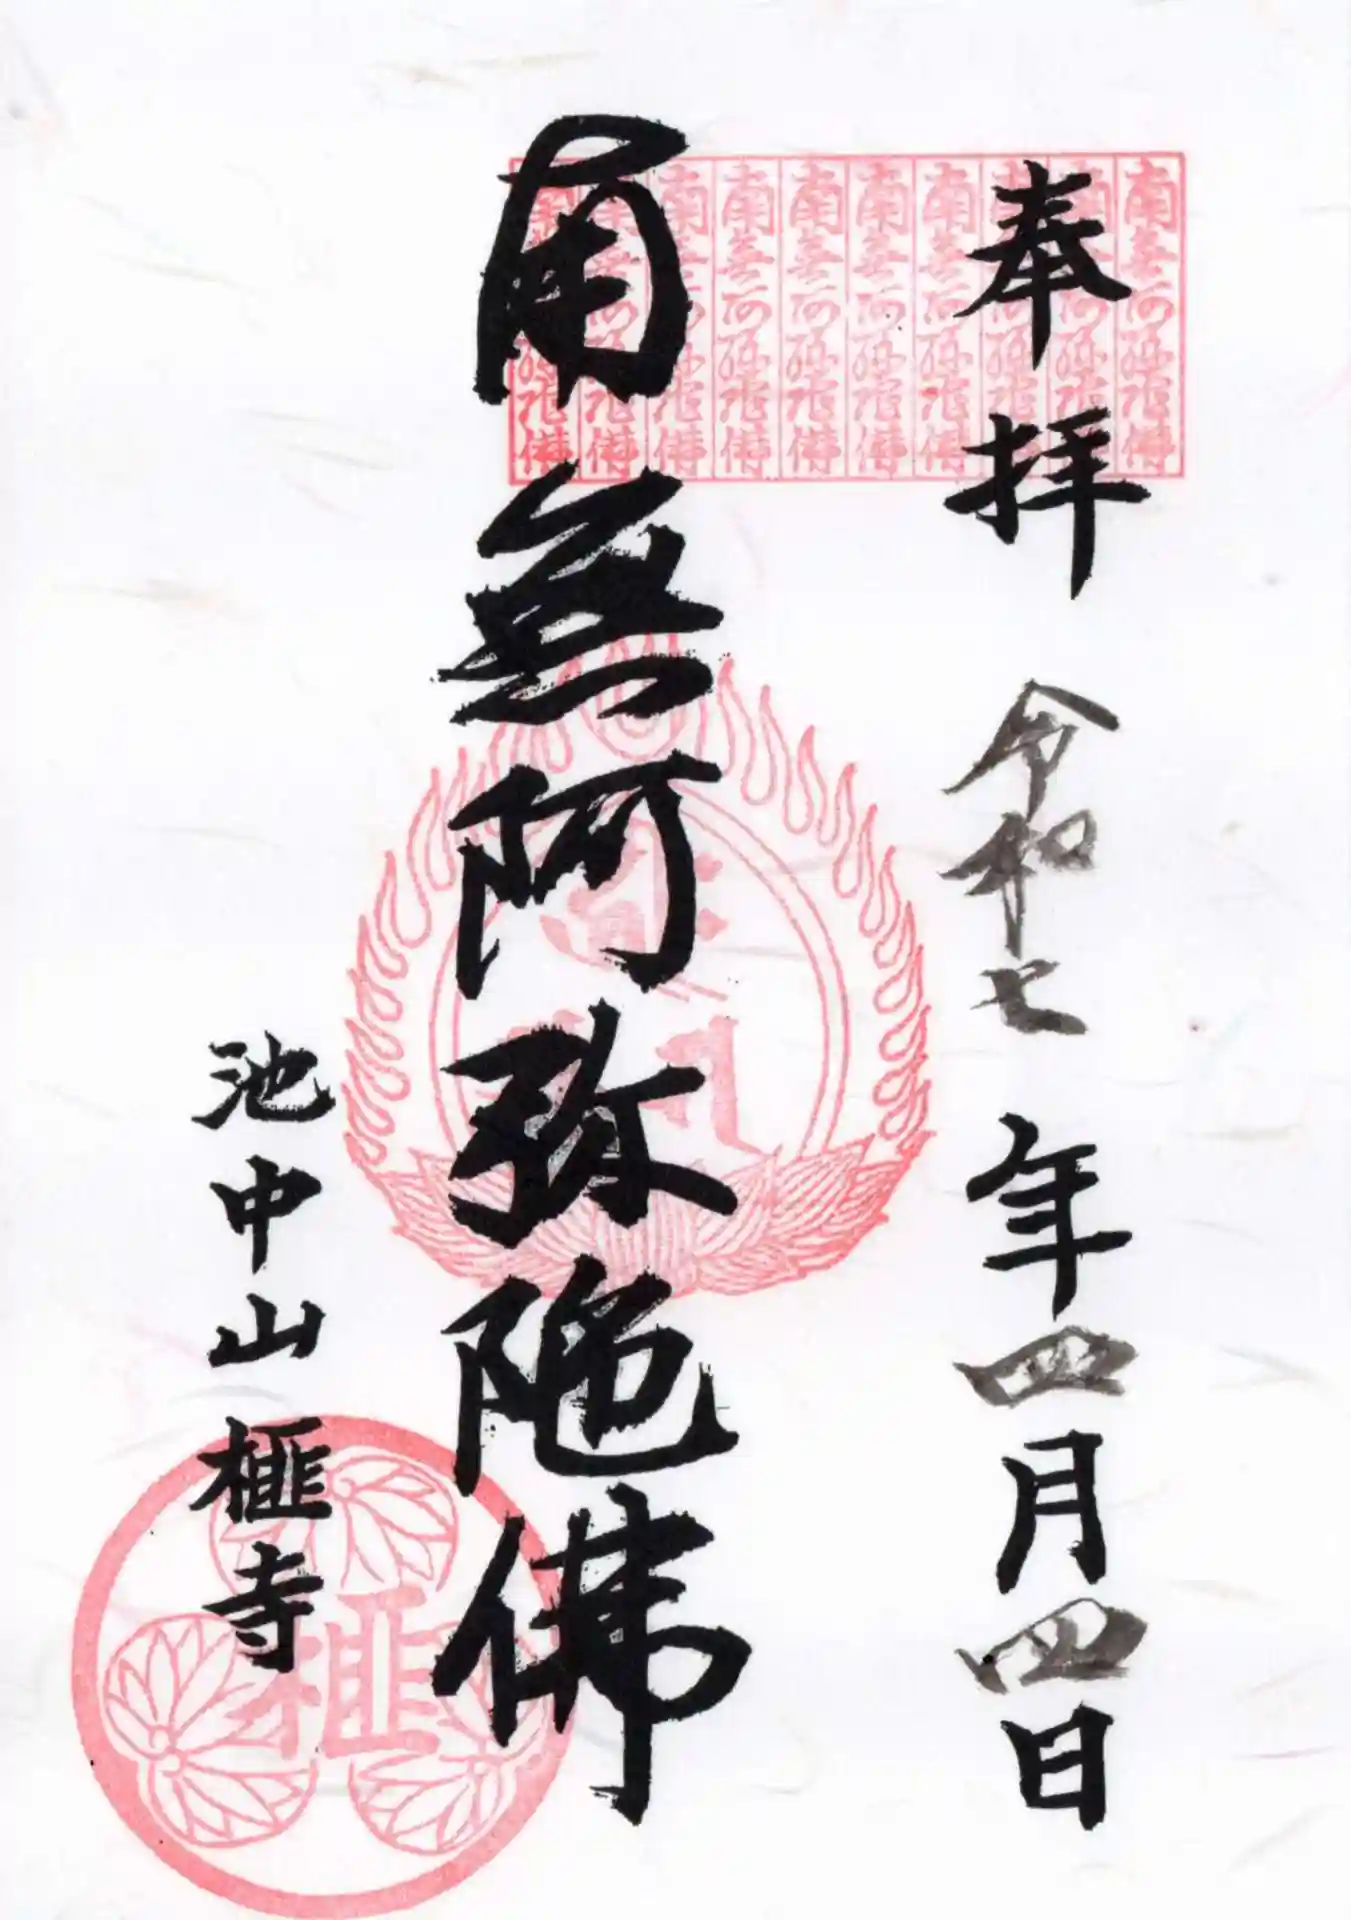 奉拝 令和七年四月四日
南無阿弥陀佛
池中山 榧寺
南無阿弥陀佛
南無阿弥陀佛
南無阿弥陀佛
南無阿弥陀佛
南無阿弥陀佛
南無阿弥陀佛
南無阿弥陀佛
南無阿弥陀佛
南無阿弥陀佛
南無阿弥陀佛
榧